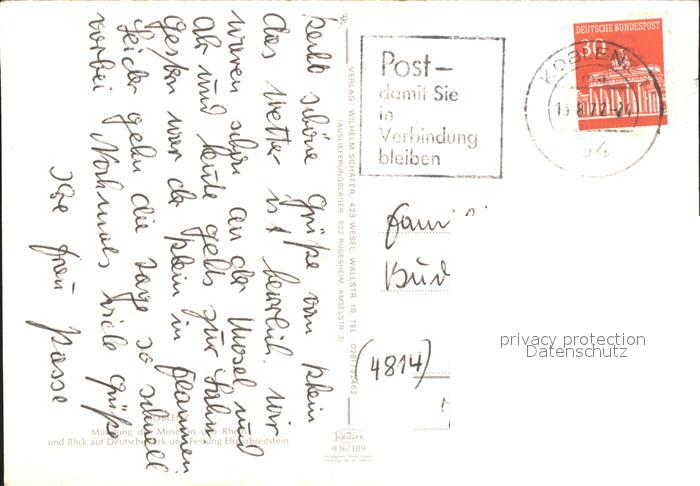 Recht schöne Grüße vom Rhein
das Wetter ist herrlich. Wir
waren schon an der Mosel und
Ahr und heute gehts zur Lahn
Gestern war der Rhein in Flammen
Leider gehn die Tage so schnell
vorbei Nochmals viele Grüße
Ihre Frau
VERLAG: WILHELM SCHÄFER, 423 WESEL, WALLSTR. 10, TEL. 0281/22462
(AUSLIEFERUNGSLAGER: 622 RÜDESHEIM, AMSELSTR. 3)
Post –
damit Sie
in
Verbindung
bleiben
DEUTSCHE BUNDESPOST
30
KOBLENZ
54
Fami
Bud
(4814)
privacy protection
Datenschutz
KOBLENZ
Mündung der Mosel in den Rhein
und Blick auf Deutsches Eck und Festung Ehrenbreitstein
Krüger
936/189